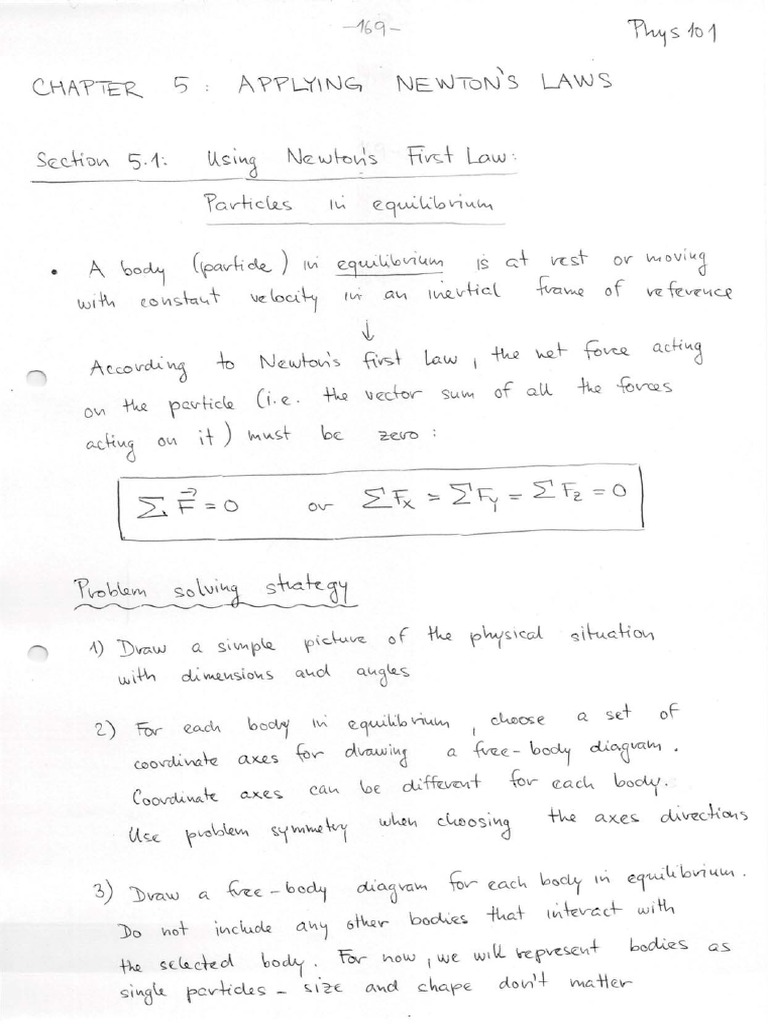 -169-
Phys 101
CHAPTER 5: APPLYING NEWTON'S LAWS
Section 5.1: Using Newton's First Law:
Particles in equilibrium
• A body (particle) in equilibrium is at rest or moving
with constant velocity in an inertial frame of reference
↓
According to Newton's first Law, the net force acting
on the particle (i.e. the vector sum of all the forces
acting on it) must be zero:
∑ F⃗ = 0 or ∑Fx = ∑Fy = ∑Fz = 0
Problem solving strategy
1) Draw a simple picture of the physical situation
with dimensions and angles
2) For each body in equilibrium, choose a set of
coordinate axes for drawing a free-body diagram.
Coordinate axes can be different for each body.
Use problem symmetry when choosing the axes directions
3) Draw a free-body diagram for each body in equilibrium.
Do not include any other bodies that interact with
the selected body. For now, we will represent bodies as
single particles - size and shape don't matter